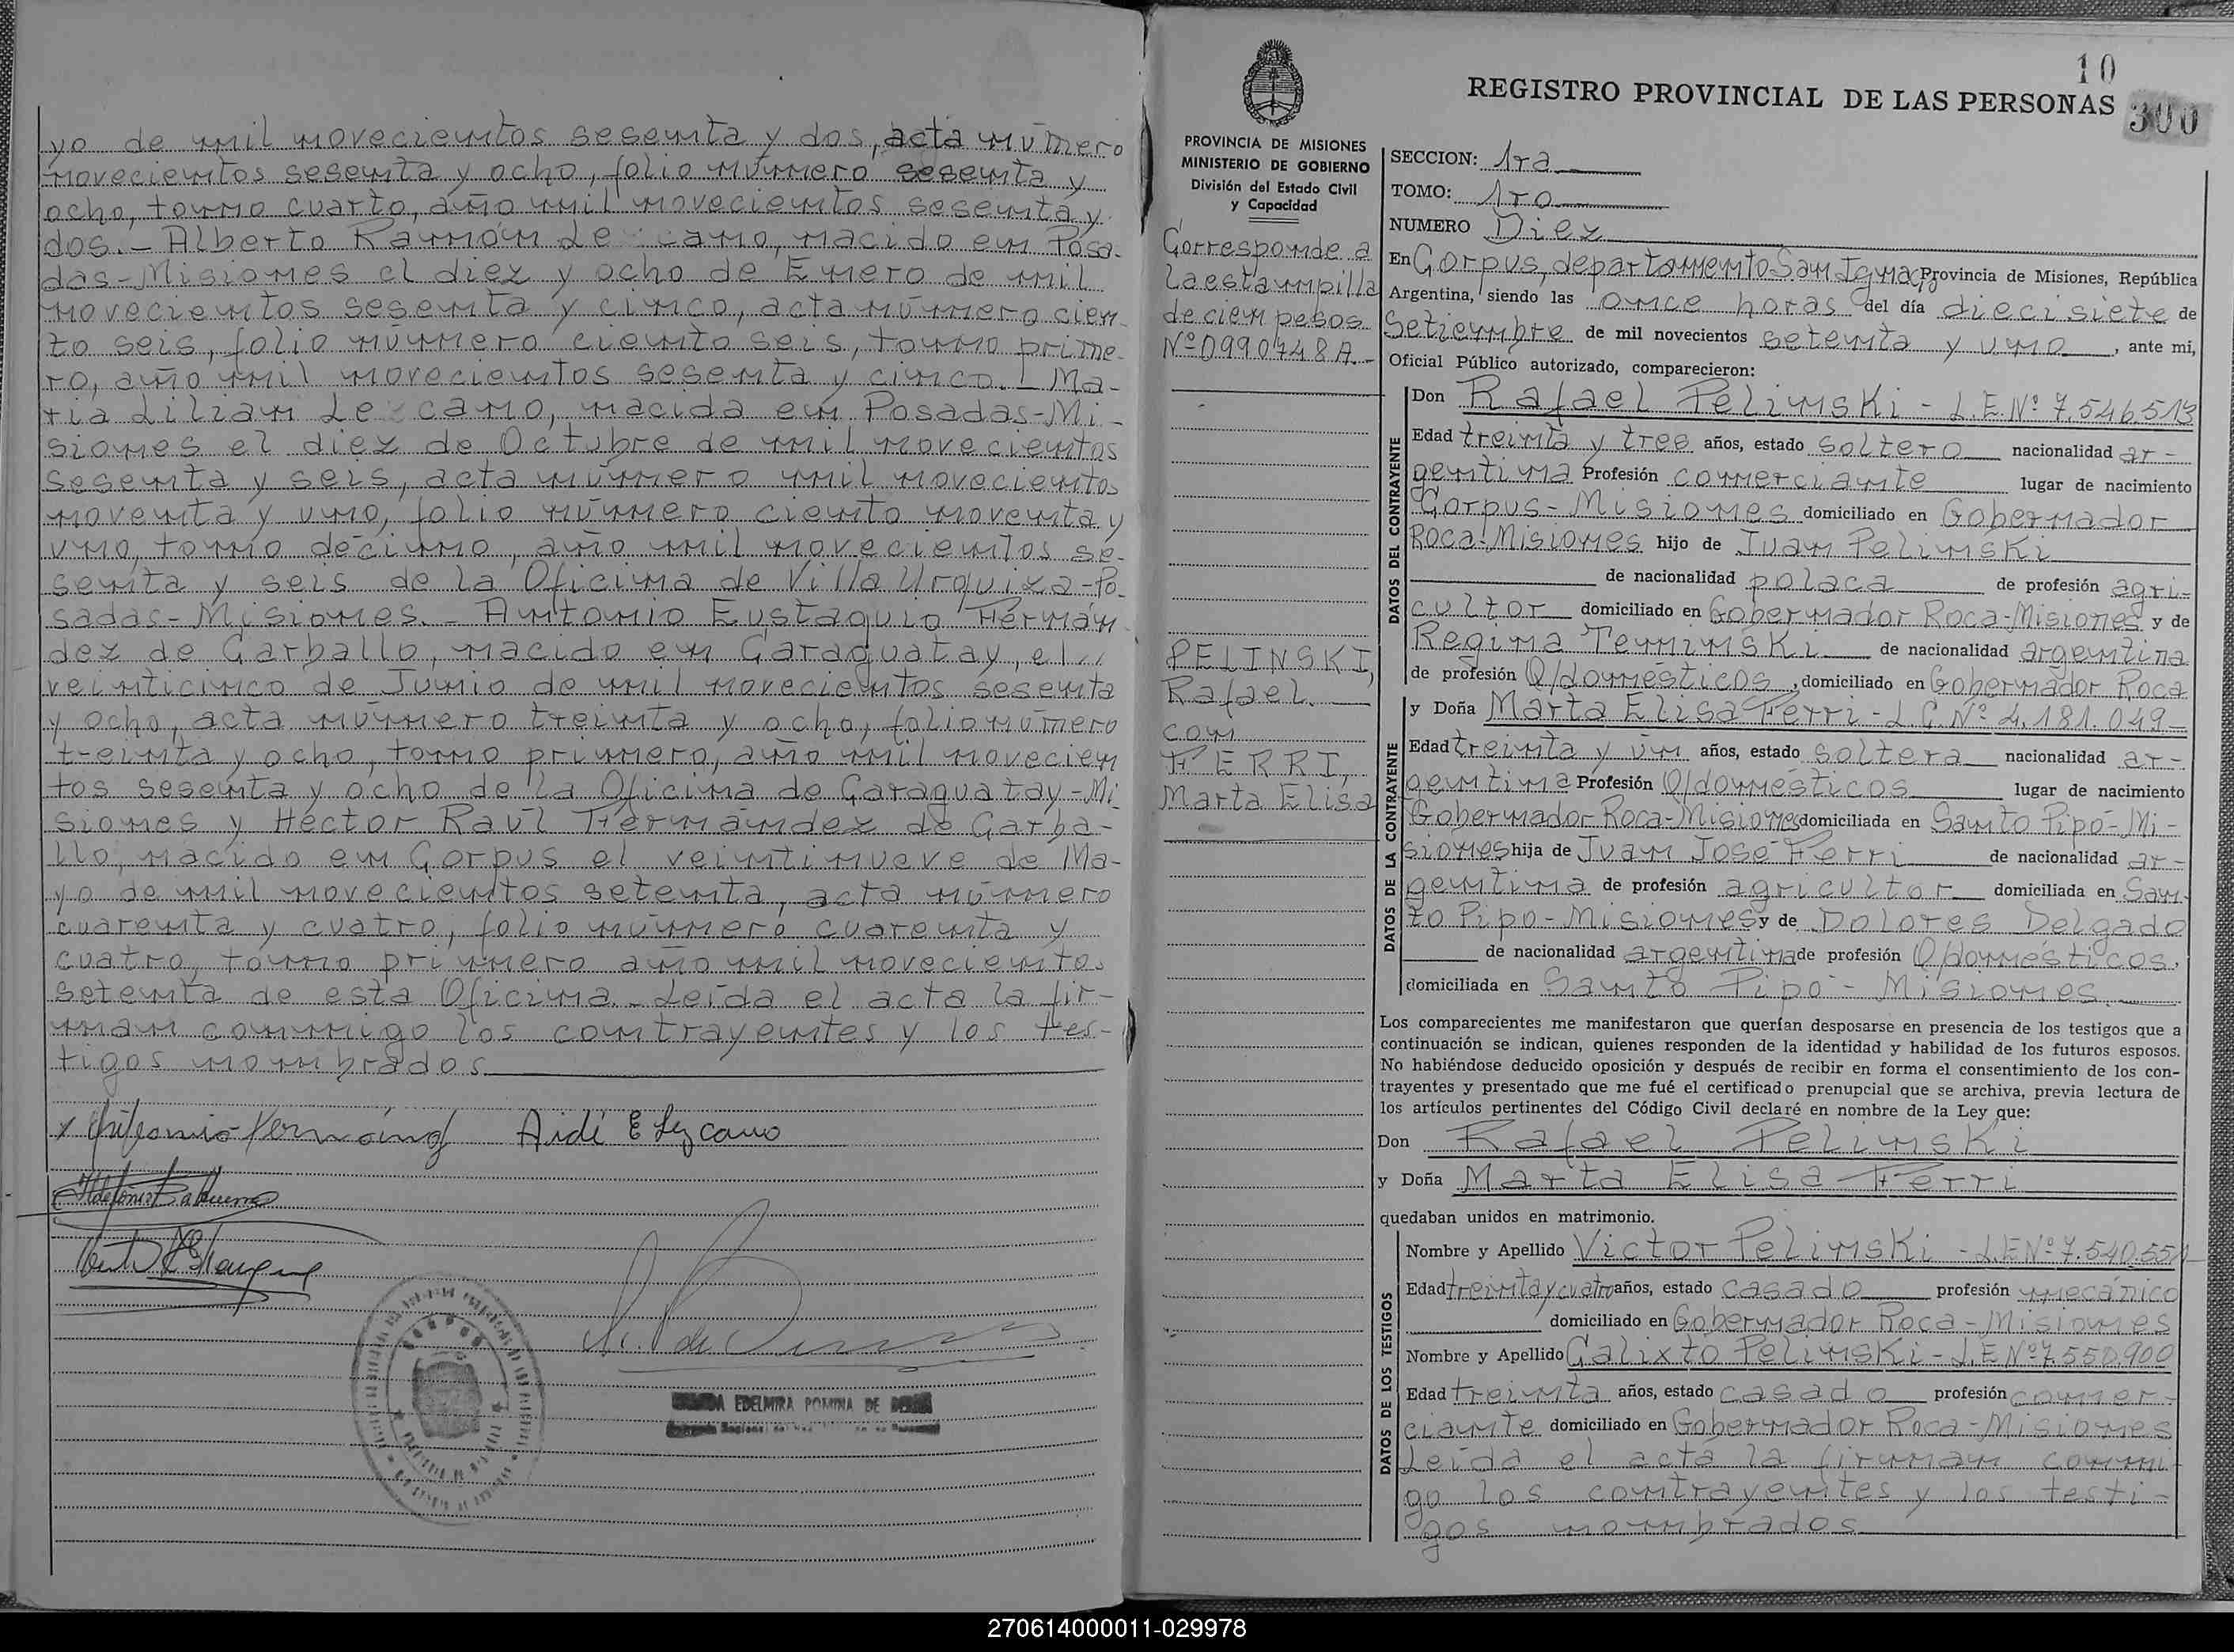 yo de mil novecientos sesenta y dos, acta número
novecientos sesenta y ocho, folio número sesenta y
ocho, tomo cuarto, año mil novecientos sesenta y
dos.- Alberto Ramón Lezcano, nacido en Posa-
das-Misiones el diez y ocho de Enero de mil
novecientos sesenta y cinco, acta número cien-
to seis, folio número ciento seis, tomo prime-
ro, año mil novecientos sesenta y cinco.- Ma-
ria Lilian Lezcano, nacida en Posadas-Mi-
siones el diez de Octubre de mil novecientos
sesenta y seis, acta número mil novecientos
noventa y uno, folio número ciento noventa y
uno, tomo décimo, año mil novecientos se-
senta y seis de la Oficina de Villa Urquiza-Po-
sadas-Misiones.- Antonio Eustaquio Fernán-
dez de Carballo, nacido en Caraguatay, el //
veinticinco de Junio de mil novecientos sesenta
y ocho, acta número treinta y ocho, folio número
treinta y ocho, tomo primero, año mil novecien
tos sesenta y ocho de la Oficina de Caraguatay-Mi
siones y Héctor Raúl Fernández de Carba-
llo, nacido en Corpus el veintinueve de Ma-
yo de mil novecientos setenta, acta número
cuarenta y cuatro, folio número cuarenta y
cuatro, tomo primero año mil novecientos
setenta de esta Oficina.- Leída el acta la fir-
man conmigo los contrayentes y los tes-
tigos nombrados
Aidé E Lezcano
EDELMIRA POMINA DE
10
REGISTRO PROVINCIAL DE LAS PERSONAS 300
PROVINCIA DE MISIONES
MINISTERIO DE GOBIERNO
División del Estado Civil
y Capacidad
Corresponde a
la estampilla
de cien pesos
Nº 0990748A.-
PELINSKI,
Rafael.
con
FERRI,
Marta Elisa
SECCION: 1ra
TOMO: 1ro
NUMERO Diez
En Corpus, departamento San Ignacio Provincia de Misiones, República
Argentina, siendo las once horas del día diecisiete de
Setiembre de mil novecientos setenta y uno, ante mi,
Oficial Público autorizado, comparecieron:
DATOS DEL CONTRAYENTE
Don Rafael Pelinski - L.E Nº 7.546.513
Edad treinta y tres años, estado soltero nacionalidad ar-
gentina Profesión comerciante lugar de nacimiento
Corpus-Misiones domiciliado en Gobernador
Roca-Misiones hijo de Juan Pelinski
de nacionalidad polaca de profesión agri-
cultor domiciliado en Gobernador Roca-Misiones y de
Regina Teminski de nacionalidad argentina
de profesión Q/domésticos, domiciliado en Gobernador Roca
DATOS DE LA CONTRAYENTE
y Doña Marta Elisa Ferri - L.C. Nº 4.181.049-
Edad treinta y un años, estado soltera nacionalidad ar-
gentina Profesión Q/domésticos lugar de nacimiento
Gobernador Roca-Misiones domiciliada en Santo Pipó-Mi-
siones hija de Juan José Ferri de nacionalidad ar-
gentina de profesión agricultor domiciliada en San-
to Pipo-Misiones y de Dolores Delgado
de nacionalidad argentina de profesión Q/domésticos,
domiciliada en Santo Pipó-Misiones.
Los comparecientes me manifestaron que querían desposarse en presencia de los testigos que a
continuación se indican, quienes responden de la identidad y habilidad de los futuros esposos.
No habiéndose deducido oposición y después de recibir en forma el consentimiento de los con-
trayentes y presentado que me fué el certificado prenupcial que se archiva, previa lectura de
los artículos pertinentes del Código Civil declaré en nombre de la Ley que:
Don Rafael Pelinski
y Doña Marta Elisa Ferri
quedaban unidos en matrimonio.
DATOS DE LOS TESTIGOS
Nombre y Apellido Victor Pelinski - L.E Nº 7.540.551
Edad treinta y cuatro años, estado casado profesión mecánico
domiciliado en Gobernador Roca-Misiones
Nombre y Apellido Calixto Pelinski - L.E Nº 7.550.900
Edad treinta años, estado casado profesión comer-
ciante domiciliado en Gobernador Roca-Misiones
Leída el acta la firman conmi-
go los contrayentes y los testi-
gos nombrados
270614000011-029978